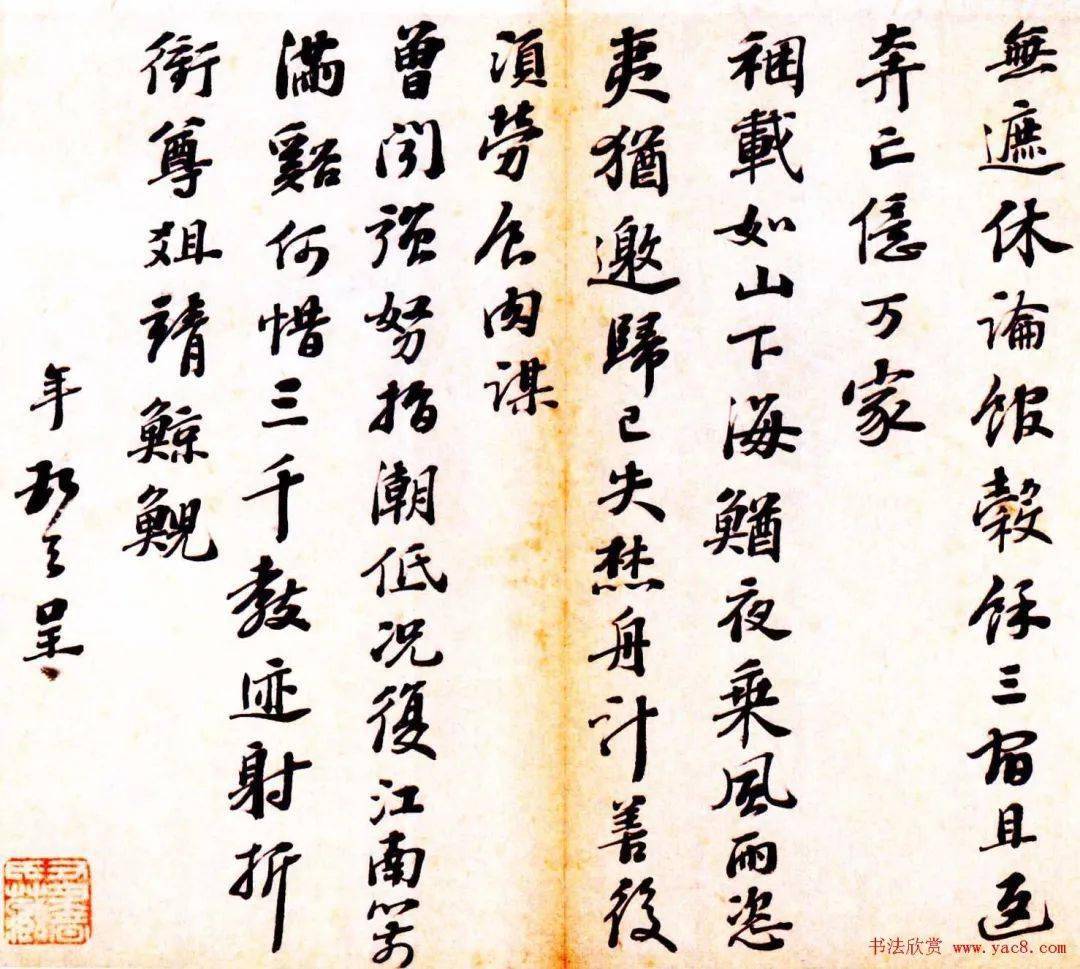 無遮休論館穀餘三宿且返
奔亡億万家
稇載如山下海鰌夜乘風雨恣
夷猶邀歸已失焚舟計善後
須勞食肉謀
曾聞强弩指潮低况復江南箭
滿谿何惜三千教迹射折
衝尊俎靖鯨鯢
年 呈
书法欣赏 www.yac8.com